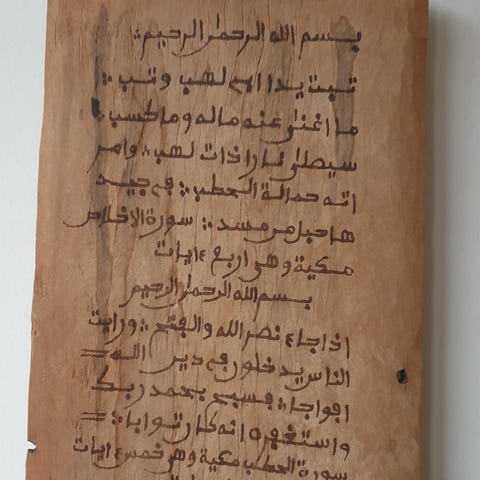 بسم الله الرحمن الرحيم
تبت يدا ابي لهب وتب
ما اغنى عنه ماله وما كسب
سيصلى نارا ذات لهب وامر
اته حمالة الحطب في جيد
ها حبل من مسد سورة الاخلاص
مكية وهي اربع ءايات
بسم الله الرحمن الرحيم
اذا جاء نصر الله والفتح ورايت
الناس يدخلون في دين الله
افواجا فسبح بحمد ربك
واستغفره انه كان توابا
سورة الحطب مكية وهي خمس ءايات